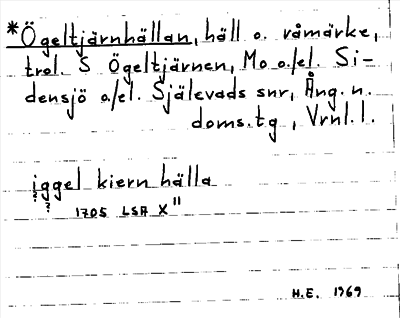 *Ögeltjärnhällan, häll o. råmärke,
trol. S Ögeltjärnen, Mo o./el. Si-
densjö o./el. Själevads snr, Ång. n.
doms.tg, Vrnl.l.
iggel kiern hälla
? ?
1705 LSA X"
H.E. 1969